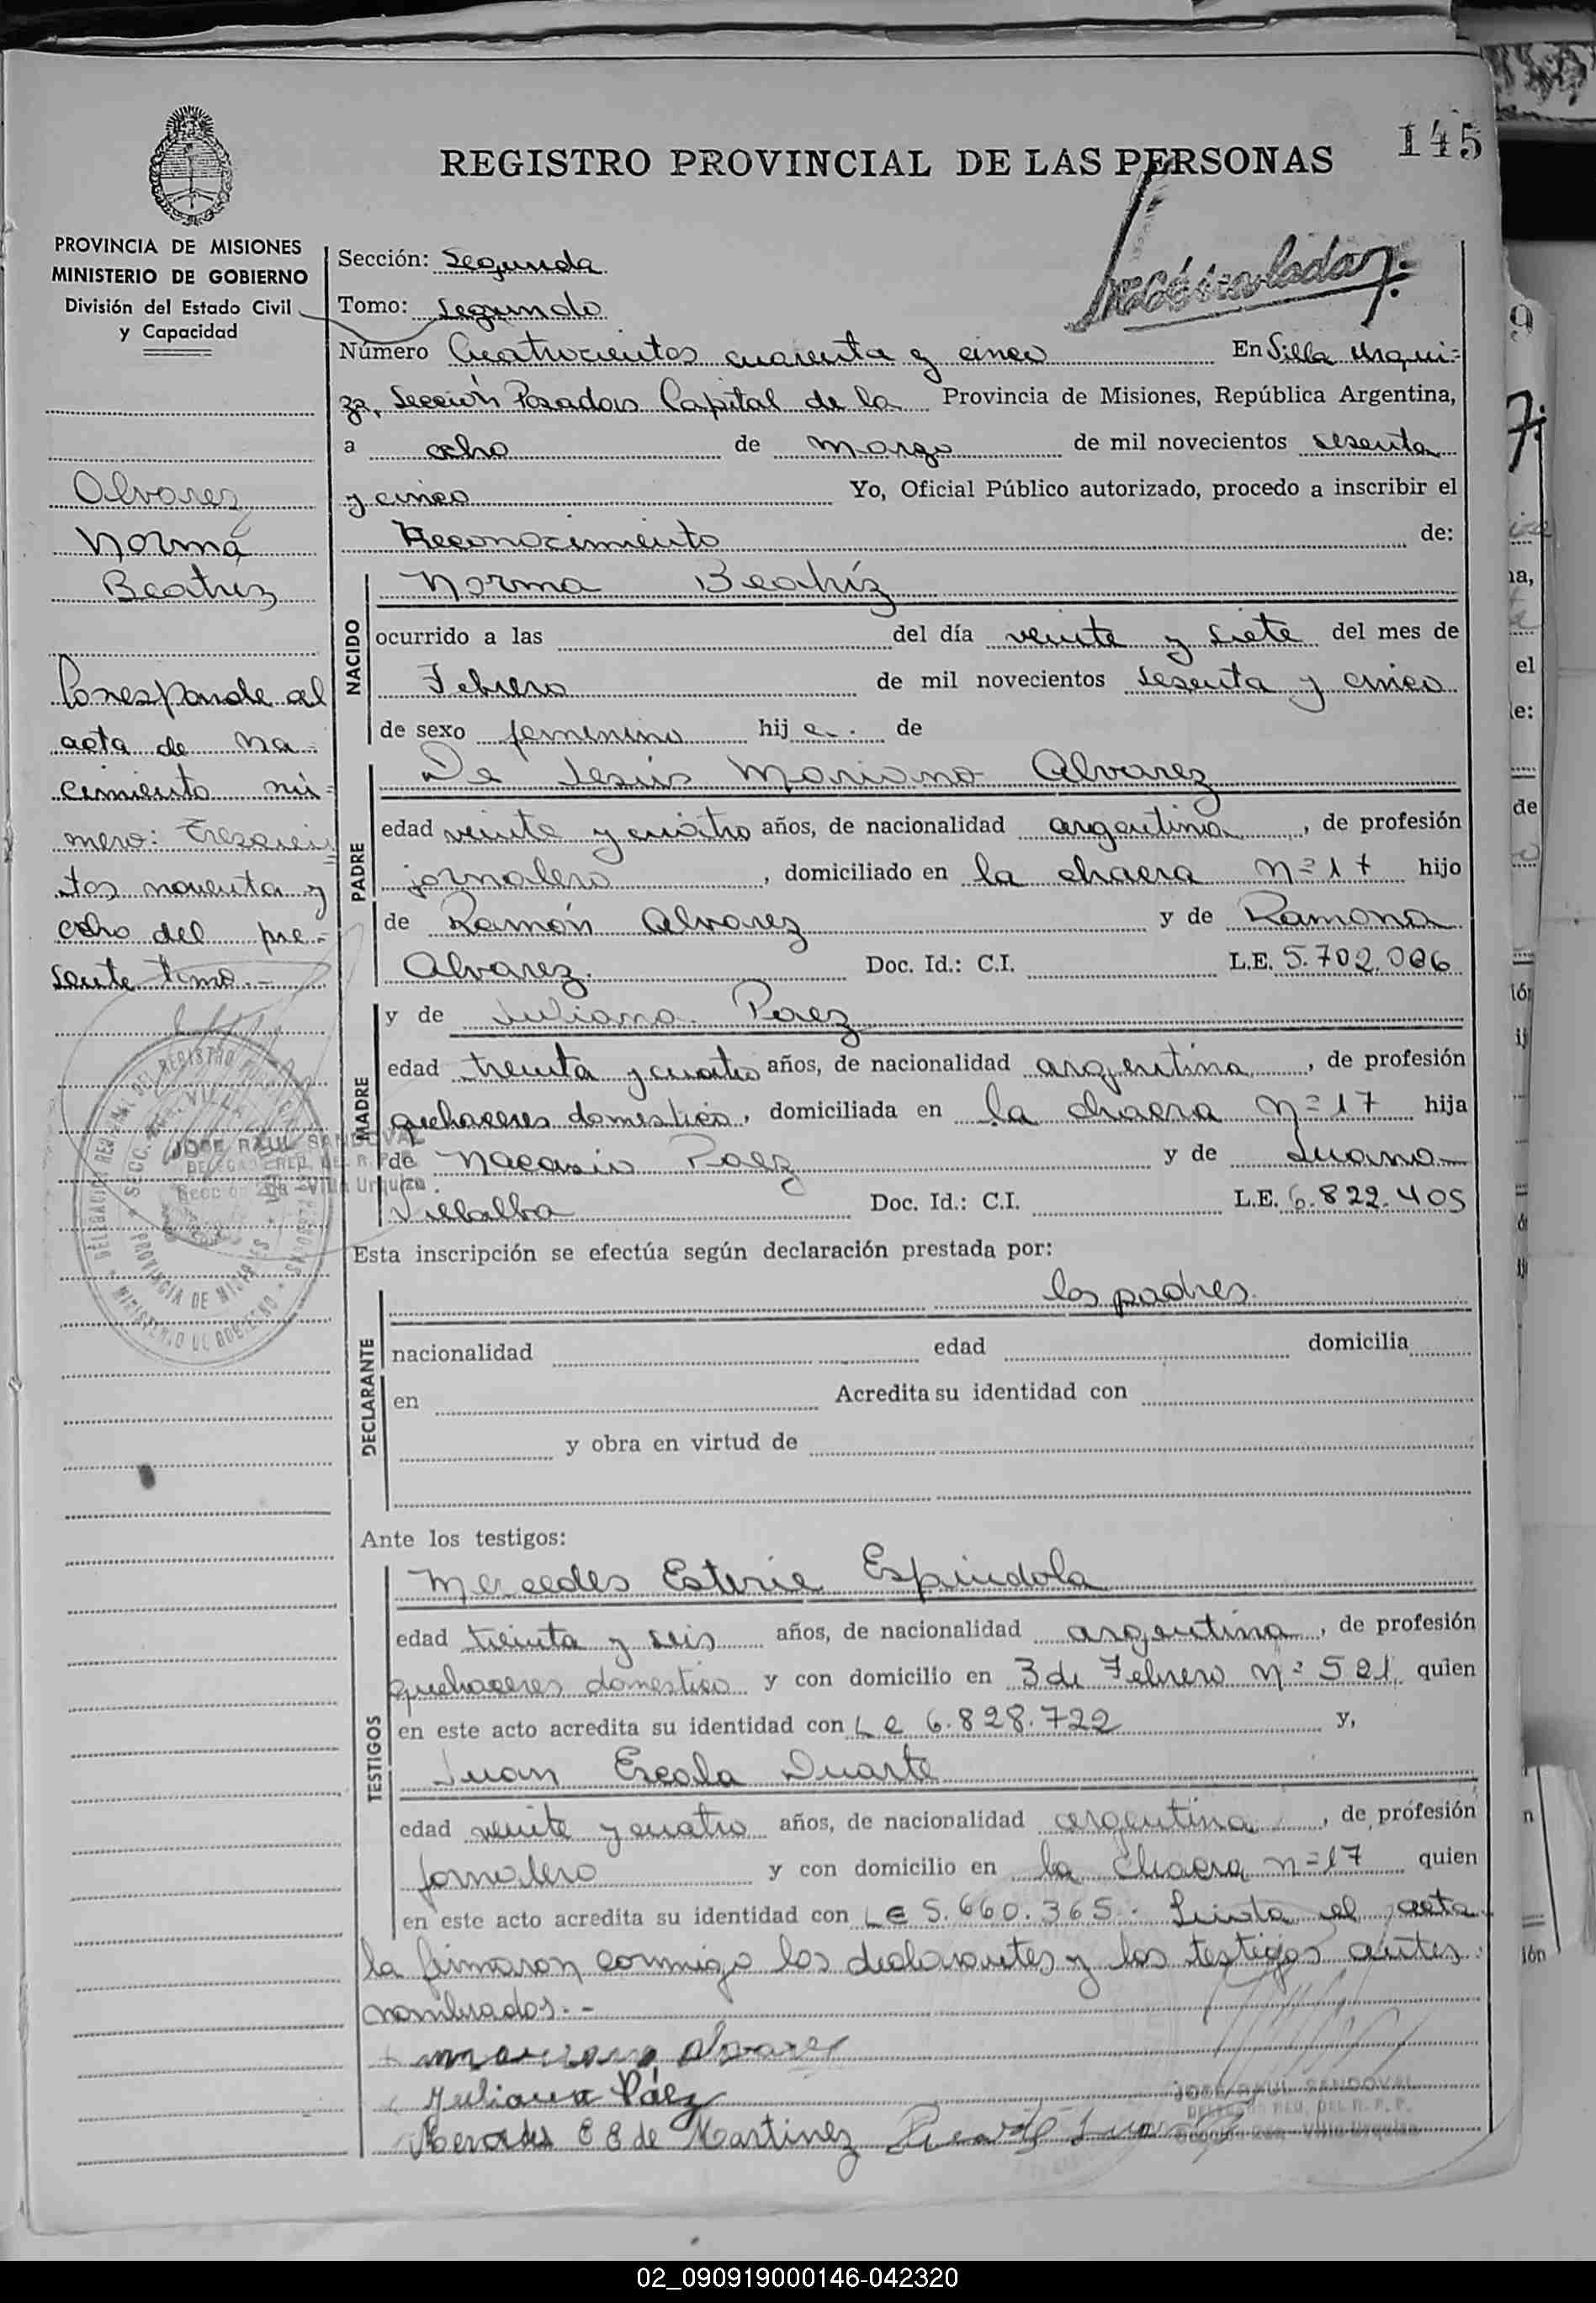 145
REGISTRO PROVINCIAL DE LAS PERSONAS
PROVINCIA DE MISIONES
MINISTERIO DE GOBIERNO
División del Estado Civil
y Capacidad
Alvarez
Norma
Beatriz
Corresponde al
acta de na-
cimiento nú=
mero: Trescien
tos noventa y
ocho del pre-
sente tomo.-
JOSE RAUL SANDOVAL
Sección 2da Villa Urquiza
PROVINCIA DE MISIONES
MINISTERIO DE GOBIERNO
Sección: Segunda
Tomo: Segundo
Número Cuatrocientos cuarenta y cinco En Villa Urqui=
za, Sección Posadas Capital de la Provincia de Misiones, República Argentina,
a ocho de Marzo de mil novecientos sesenta
y cinco Yo, Oficial Público autorizado, procedo a inscribir el
Reconocimiento de:
NACIDO
Norma Beatríz
ocurrido a las del día veinte y siete del mes de
Febrero de mil novecientos sesenta y cinco
de sexo femenino hij a. de
PADRE
De Jesús Mariano Alvarez
edad veinte y cuatro años, de nacionalidad argentina, de profesión
jornalero, domiciliado en la chacra Nº 17 hijo
de Ramón Alvarez y de Ramona
Alvarez. Doc. Id.: C.I. L.E. 5.702.006
MADRE
y de Juliana Paez
edad treinta y cuatro años, de nacionalidad argentina, de profesión
quehaceres domestico, domiciliada en la chacra Nº 17 hija
de Nacasio Paez y de Juana
Villalba Doc. Id.: C.I. L.E. 6.822.405
Esta inscripción se efectúa según declaración prestada por:
DECLARANTE
los padres
nacionalidad edad domicilia
en Acredita su identidad con
y obra en virtud de
Ante los testigos:
TESTIGOS
Mercedes Espindola
edad treinta y seis años, de nacionalidad argentina, de profesión
quehaceres domestico y con domicilio en 3 de Febrero Nº 521 quien
en este acto acredita su identidad con L e 6.828.722 y,
Juan Escala Duarte
edad veinte y cuatro años, de nacionalidad argentina, de profesión
jornalero y con domicilio en la chacra nº 17 quien
en este acto acredita su identidad con LE 5.660.365. Leida el acta
la firmaron conmigo los declarantes y los testigos antes
nombrados.-
mariano alvarez
Juliana Páez
Mercedes E E de Martinez
JOSE RAUL SANDOVAL
DELEGADO REG. DEL R. P. P.
Sección 2da. Villa Urquiza
02_090919000146-042320